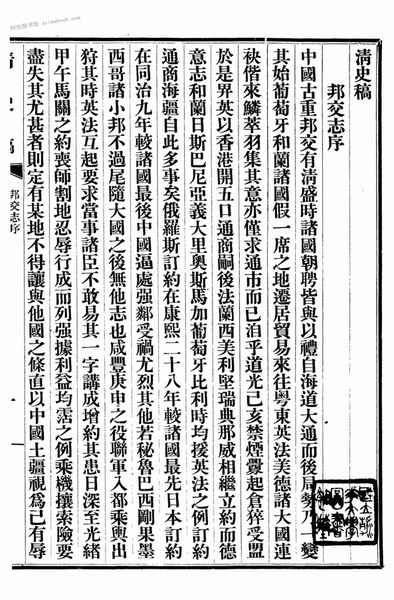 清史稿
邦交志序
中國古重邦交有清盛時諸國朝聘皆與以禮自海道大通而後局勢乃一變
其始葡萄牙和蘭諸國假一席之地遷居貿易來往粤東英法美德諸大國連
袂偕來鱗萃羽集其意亦僅求通市而已洎乎道光己亥禁煙釁起倉猝受盟
於是畀英以香港開五口通商嗣後法蘭西美利堅瑞典那威相繼立約而德
意志和蘭日斯巴尼亞義大里奧斯馬加葡萄牙比利時均援英法之例訂約
通商海疆自此多事矣俄羅斯訂約在康熙二十八年較諸國最先日本訂約
在同治九年較諸國最後中國逼處强鄰受禍尤烈其他若秘魯巴西剛果墨
西哥諸小邦不過尾隨大國之後無他志也咸豐庚申之役聯軍入都乘輿出
狩其時英法互起要求當事諸臣不敢易其一字講成增約其患日深至光緒
甲午馬關之約喪師割地忍辱行成而列强據利益均霑之例乘機攘索險要
盡失其尤甚者則定有某地不得讓與他國之條直以中國土疆視爲己有辱
邦交志序